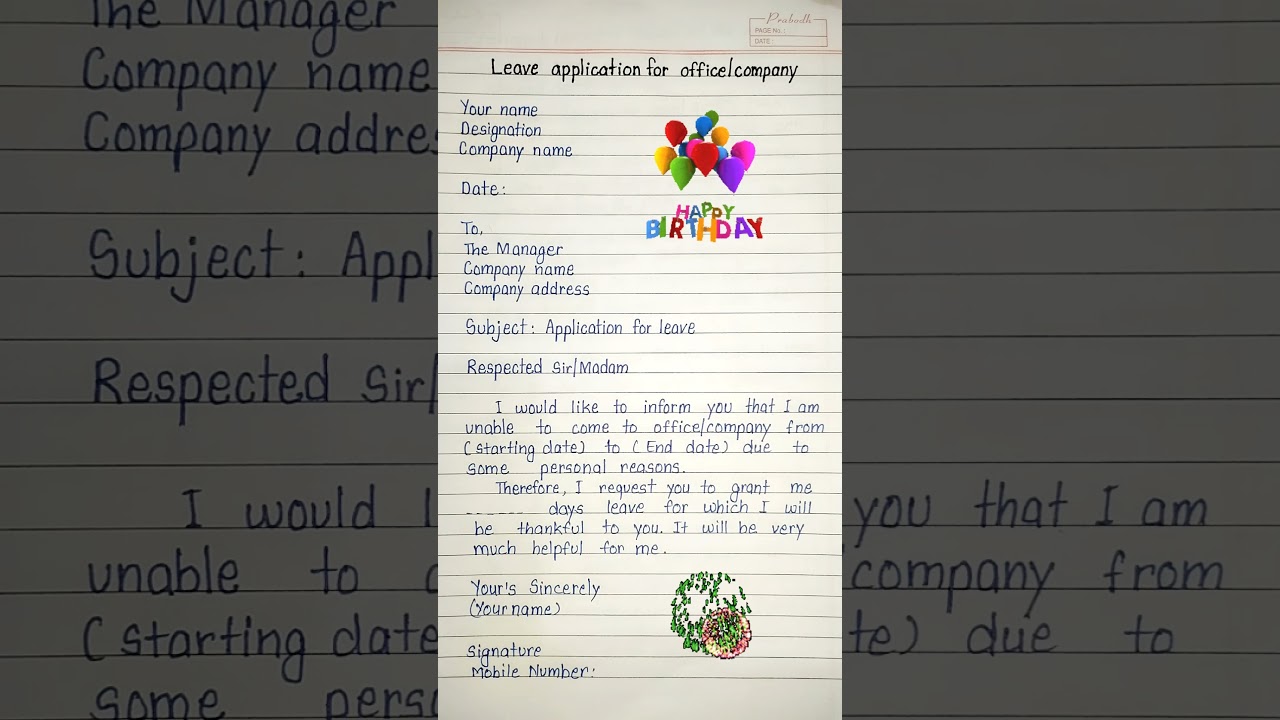 Prabodh
PAGE No. :
DATE :
Leave application for office/company
Your name
Designation
Company name
Date:
HAPPY
BIRTHDAY
To,
The Manager
Company name
Company address
Subject: Application for leave
Respected Sir/Madam
I would like to inform you that I am
unable to come to office/company from
(starting date) to (End date) due to
some personal reasons.
Therefore, I request you to grant me
------ days leave for which I will
be thankful to you. It will be very
much helpful for me.
Your's Sincerely
(Your name)
Signature
Mobile Number:
The Manager
Company name
Company addre
Subject: Appl
Respected Sir/
I would l
unable to c
(starting date
some perso
you that I am
company from
te) due to